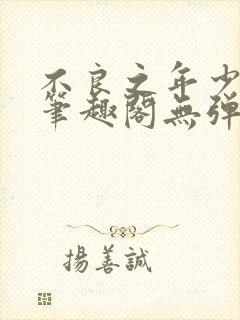 不良之年少
筆趣閣無彈
揚善誠